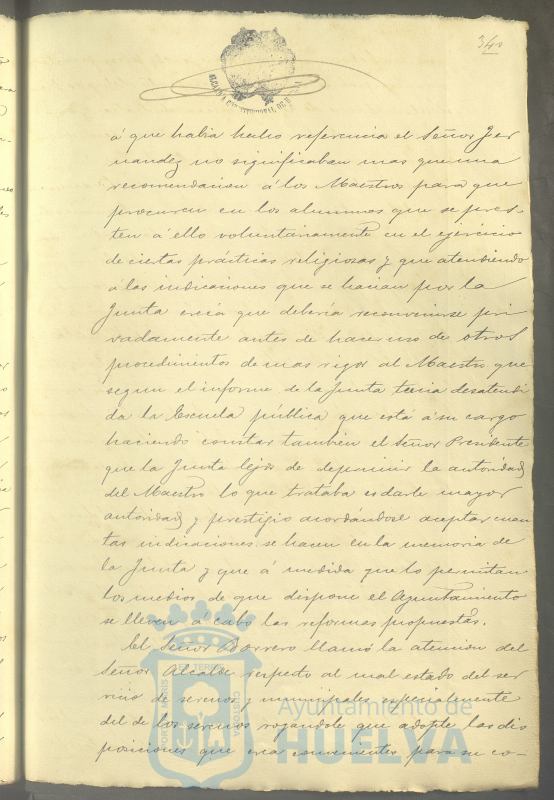 340
á que habia hecho referencia el Señor Fer
nandez no significaban mas que una
recomendacion á los Maestros para que
procuren en los alumnos que se pres-
ten á ello voluntariamente en el ejercicio
de ciertas prácticas religiosas y que atendiendo
á las indicaciones que se hacian por la
Junta creia que deberia reconvenirse pri
vadamente antes de hacer uso de otros
procedimientos de mas rigor al Maestro que
segun el informe de la Junta tenia desatendi
da la Escuela pública que está á su cargo
haciendo constar tambien el Señor Presidente
que la Junta lejos de deprimir la autoridad
del Maestro lo que trataba es darle mayor
autoridad y prestigio acordándose aceptar cuan
tas indicaciones se hacen en la memoria de
la Junta y que á medida que lo permitan
los medios de que dispone el Ayuntamiento
se lleven á cabo las reformas propuestas.
El Señor Borrero llamó la atencion del
Señor Alcalde respecto al mal estado del ser
vicio de serenos y municipales especialmente
del de los serenos rogándole que adopte las dis
posiciones que crea convenientes para su co-
Ayuntamiento de
HUELVA